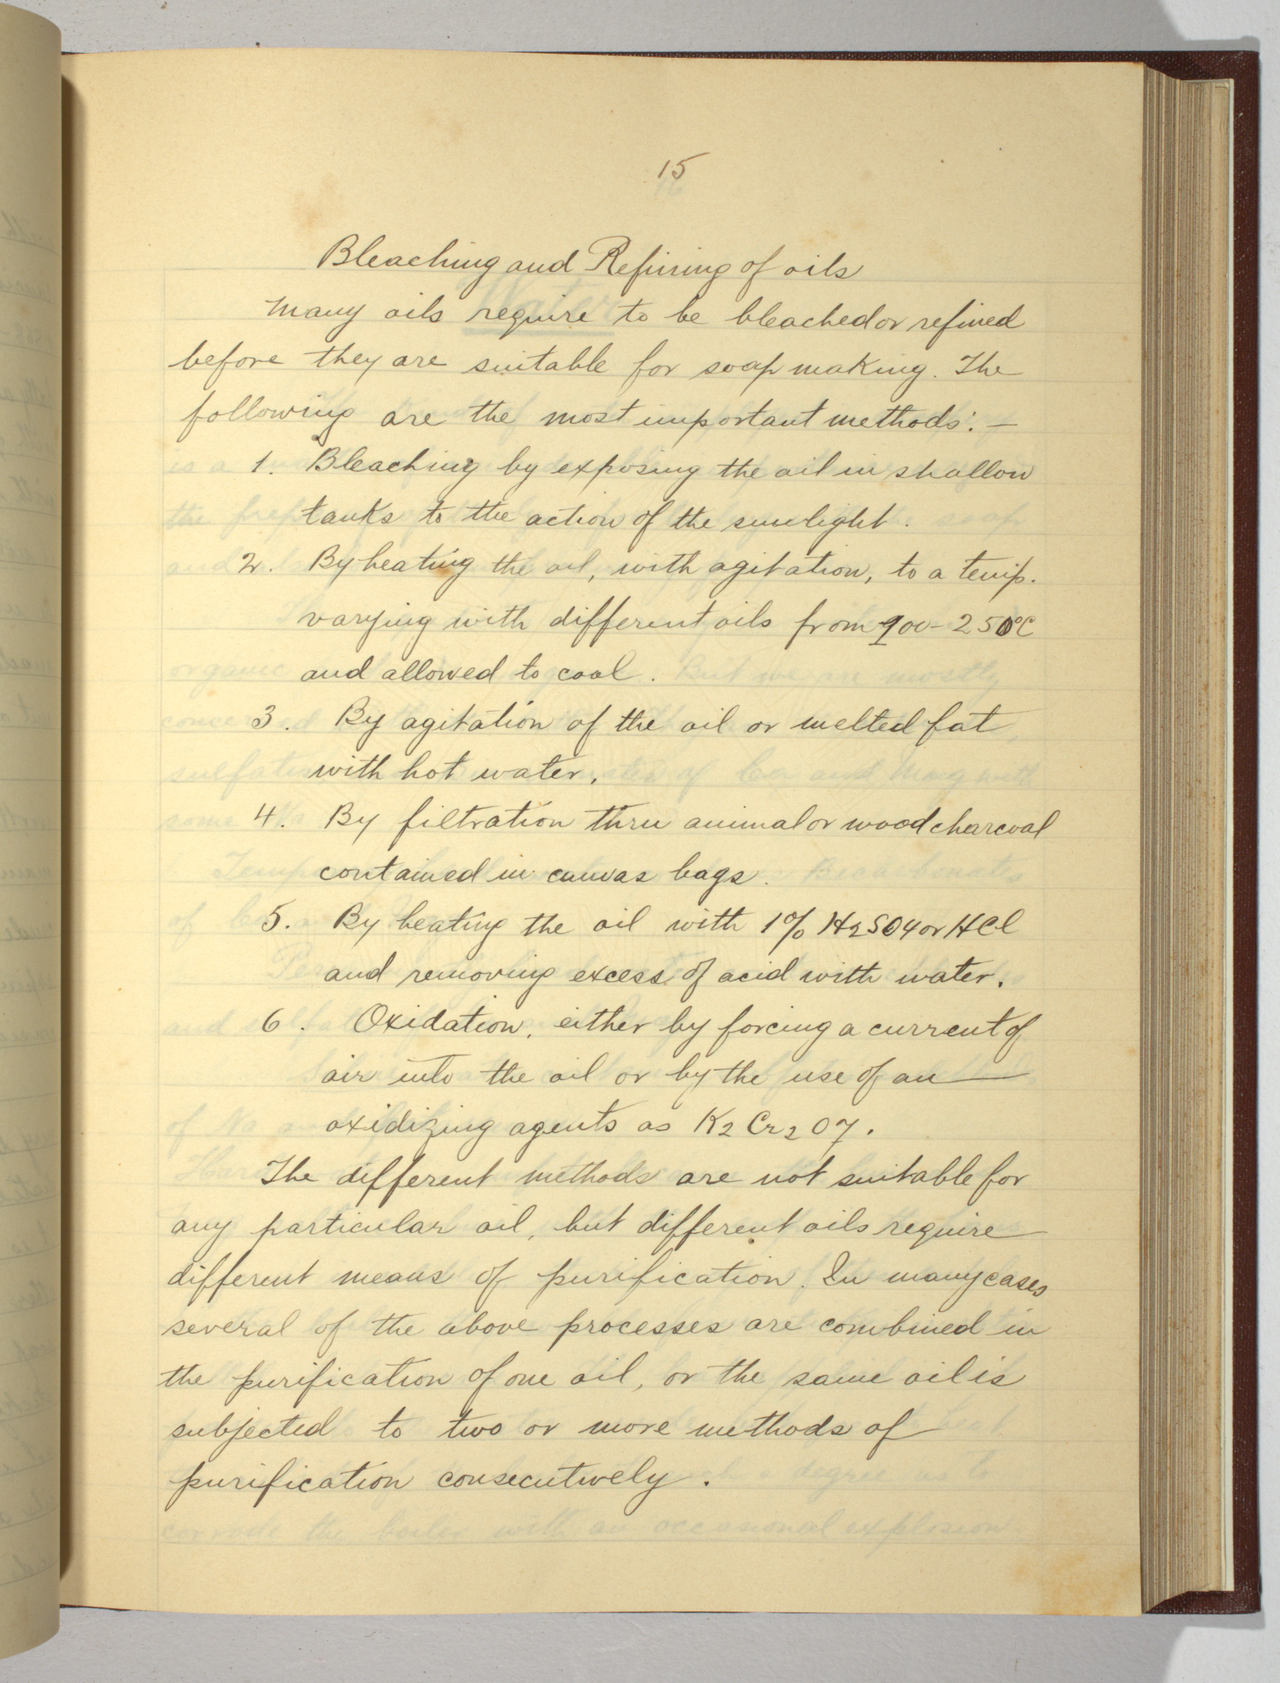 15
Bleaching and Refining of oils
Many oils require to be bleached or refined
before they are suitable for soap making. The
following are the most important methods: —
1. Bleaching by exposing the oil in shallow
tanks to the action of the sunlight.
2. By heating the oil, with agitation, to a temp.
varying with different oils from 200 - 250°C
and allowed to cool.
3. By agitation of the oil or melted fat
with hot water.
4. By filtration thru animal or wood charcoal
contained in canvas bags.
5. By heating the oil with 1% H2SO4 or HCl
and removing excess of acid with water.
6. Oxidation, either by forcing a current of
air into the oil or by the use of an —
oxidizing agents as K2Cr2O7.
The different methods are not suitable for
any particular oil, but different oils require
different means of purification. In many cases
several of the above processes are combined in
the purification of one oil, or the same oil is
subjected to two or more methods of
purification consecutively.